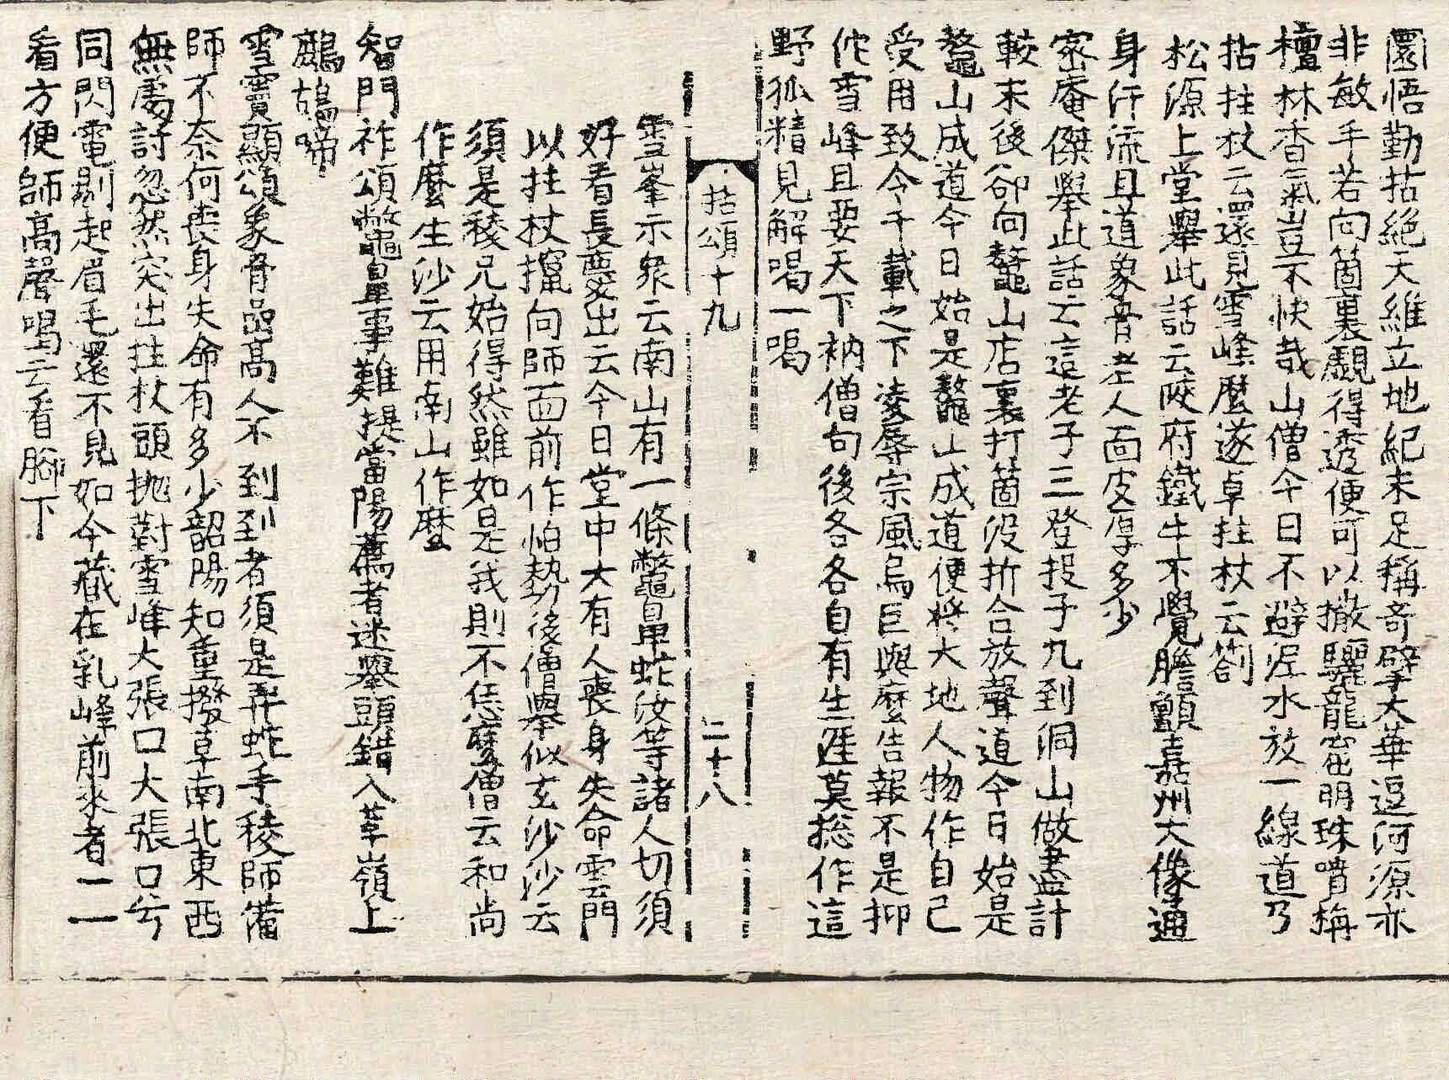 圜悟勤拈絕天維立地紀未足稱奇擘太華逗河源亦
非敏手若向箇裏覷得透便可以撒驪龍窟明珠噴栴
檀林香氣豈不快哉山僧今日不避泥水放一線道乃
拈拄杖云還見雪峰麼遂卓拄杖云劄
松源上堂舉此話云陜府鐵牛不覺膽顫嘉州大像通
身汗流且道象骨老人面皮厚多少
密庵傑舉此話云這老子三登投子九到洞山做盡計
較末後卻向鼇山店裏打箇沒折合放聲道今日始是
鼇山成道今日始是鼇山成道便將大地人物作自己
受用致令千載之下凌辱宗風烏巨與麼告報不是抑
佗雪峰且要天下衲僧句後各各自有生涯莫揔作這
野狐精見解喝一喝
拈頌十九
二十八
雪峯示衆云南山有一條鱉鼻蛇汝等諸人切須
好看長慶出云今日堂中大有人喪身失命雲門
以拄杖攛向師面前作怕勢後僧舉似玄沙沙云
須是稜兄始得然雖如是我則不恁麼僧云和尚
作麼生沙云用南山作麼
智門祚頌鱉鼻事難提當陽薦者迷舉頭錯入草嶺上
鷓鴣啼
雪竇顯頌象骨嵒高人不到到者須是弄蛇手稜師備
師不奈何喪身失命有多少韶陽知重撥草南北東西
無處討忽然突出拄杖頭拋對雪峰大張口大張口兮
同閃電剔起眉毛還不見如今藏在乳峰前來者一一
看方便師高聲喝云看腳下